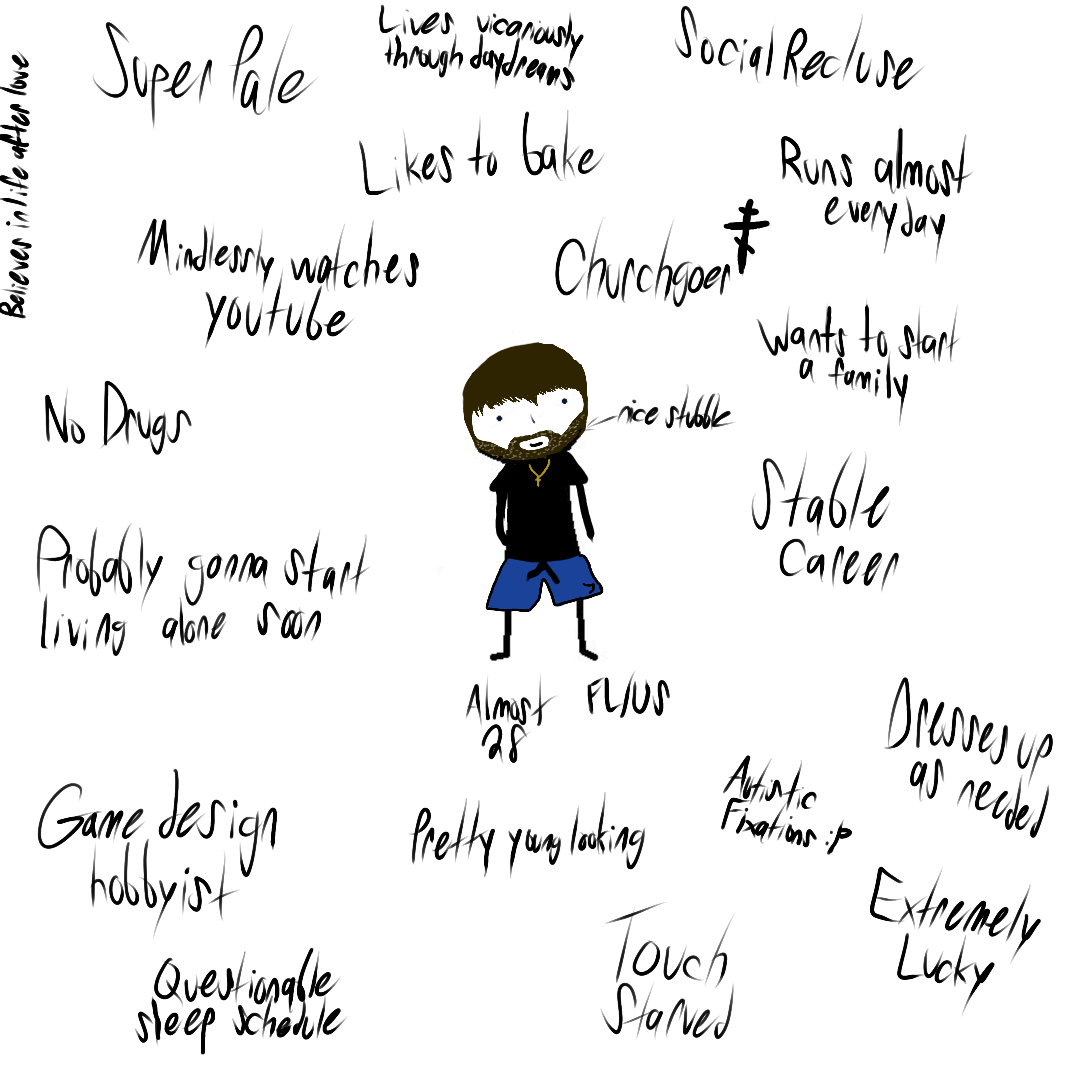 Believes in life after love
Super Pale
Lives vicariously
through daydreams
Social Recluse
Likes to bake
Runs almost
everyday
Mindlessly watches
youtube
Churchgoer
Wants to start
a family
No Drugs
nice stubble
Stable
Career
Probably gonna start
living alone soon
Almost
28
FL/US
Dresses up
as needed
Game design
hobbyist
Pretty young looking
Autistic
Fixations :P
Extremely
Lucky
Questionable
sleep schedule
Touch
Starved